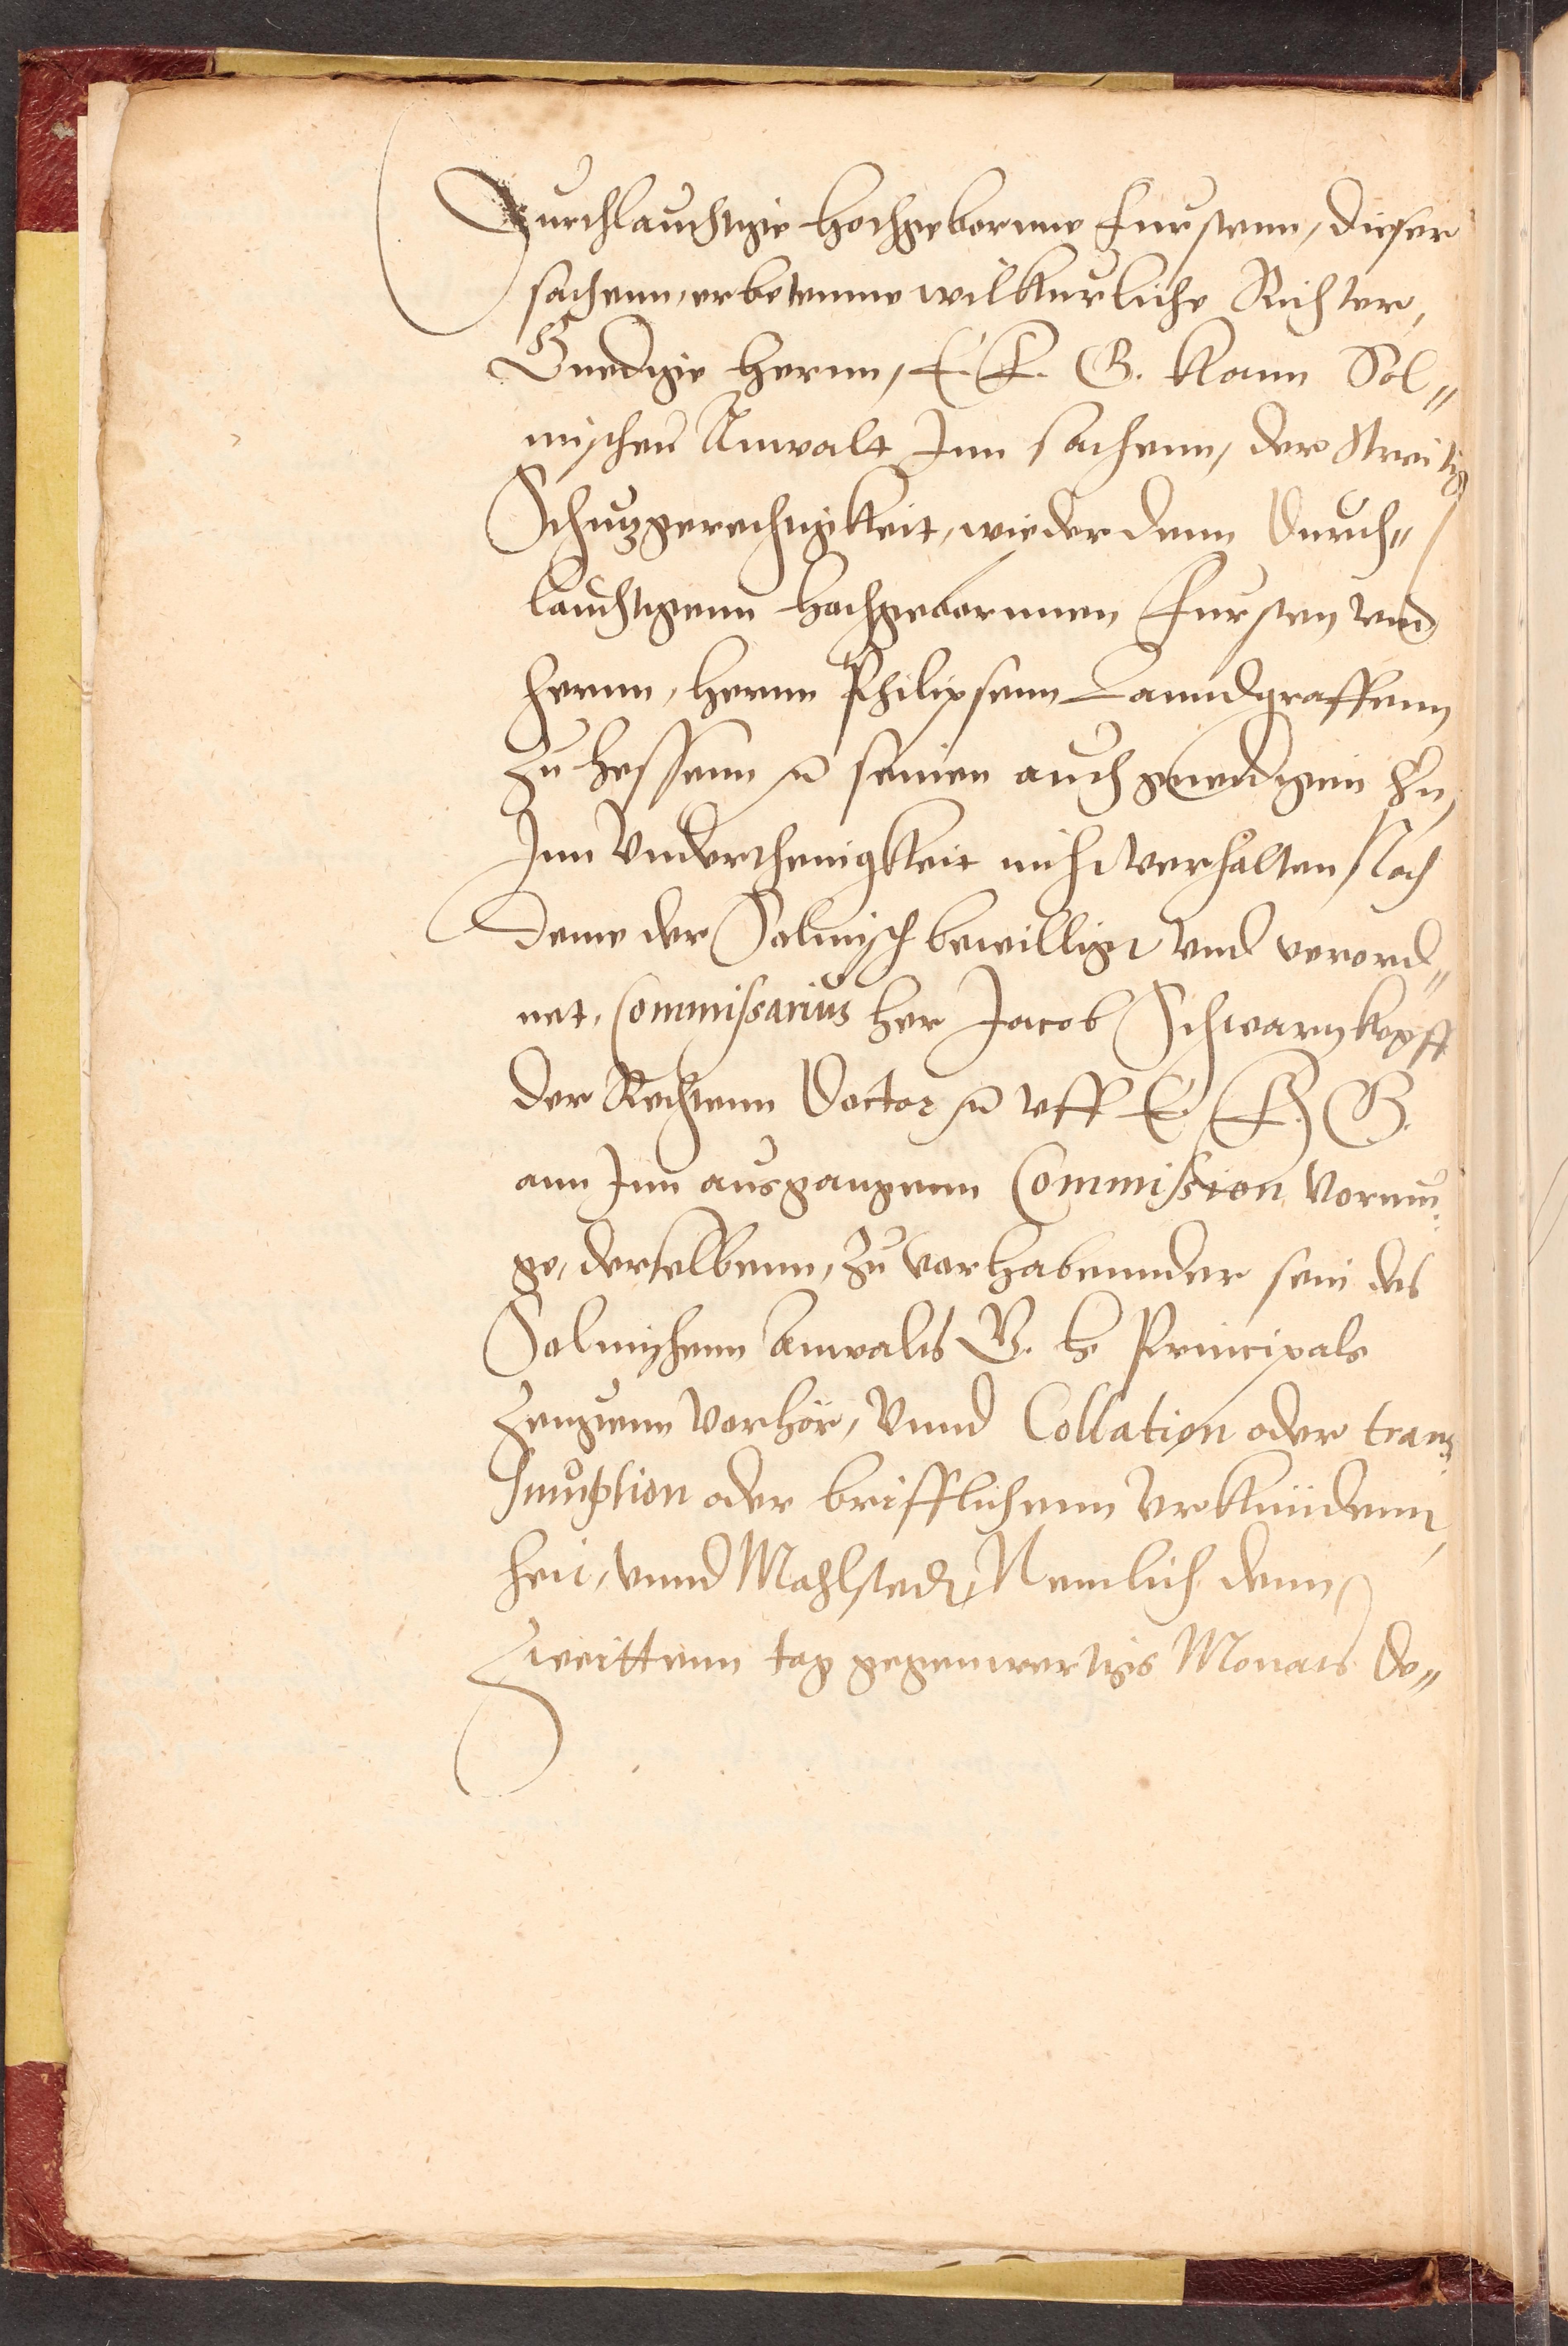 Durchlauchtige Hochgebornne Furstenn, dieser
sachenn, erbetenne wilkurliche Richter,
Gnedige Hernn, E. F. G. kann Sol„
mischer Anwalt Inn sachenn, der Streitig
Schutzgerechtigkeit, wieder denn Durch„
lauchtigenn Hochgebornnen Fursten vnd
Hernn, Hernn Philipsenn Lanndgraffenn
zu Hessenn ꝛc seinen auch gnedigenn Hn,
Inn Vnderthenigkeit nicht verhalten, Nach
deme der Solmisch bewilligt vnd verord„
net, Commissarius Her Jacob Schwartzkopff
der Rechtenn Doctor ꝛc vff E. F. G.
ann Inn ausgangenn Commission, vermu„
ge, derselbenn, zu vorhabennder sein des
Solmischenn Anwalts G. H. Principals
Zeugenn Verhör, Vnnd Collation oder trans
Sumption oder briefflichenn Vrkundenn,
Zeit, vnnd Mahlstedt, Nemlich denn
Zweittenn tag gegenwertigs Monats De„